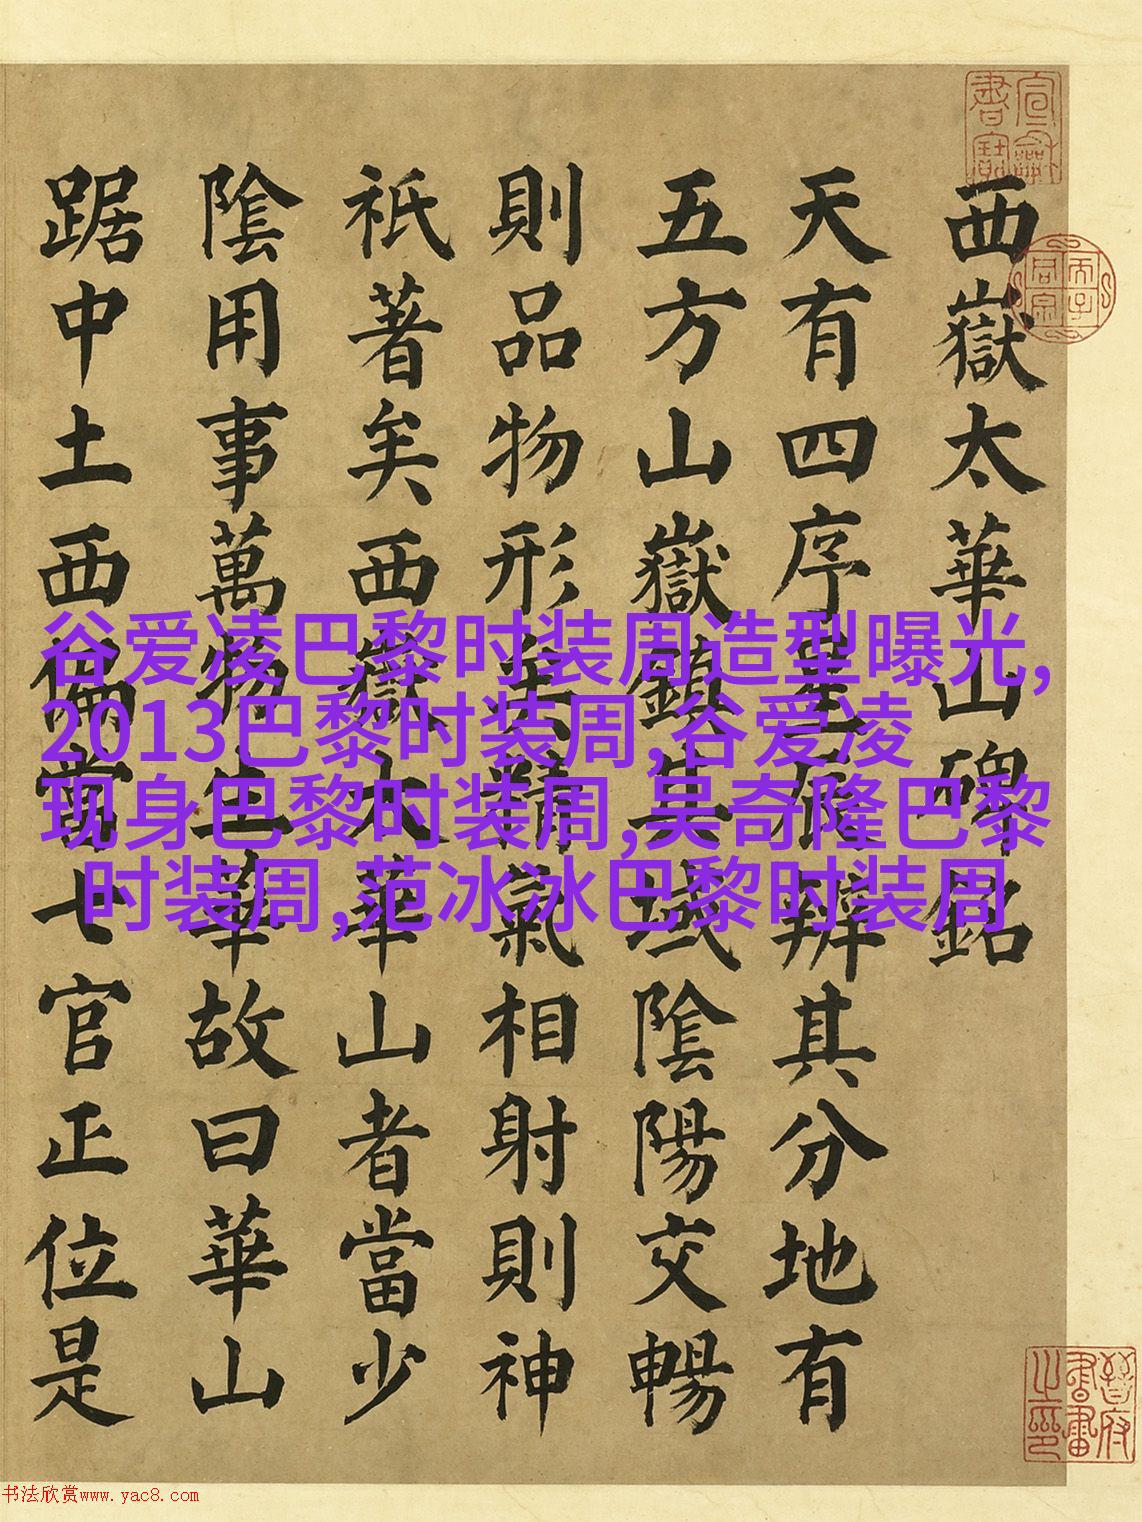 西嶽太華山碑銘
天有四序星辰辨其分地有
五方山嶽鎮其域陰陽交暢
則品物形焉精氣相射則神
祇著矣西嶽太華山者當少
陰用事萬物生華故曰華山
踞中土西偏當七官正位是
谷爱凌巴黎时装周造型曝光,
2013巴黎时装周,谷爱凌
现身巴黎时装周,吴奇隆巴黎
时装周,范冰冰巴黎时装周
晉府書畫之印
书法欣赏www.yac8.com